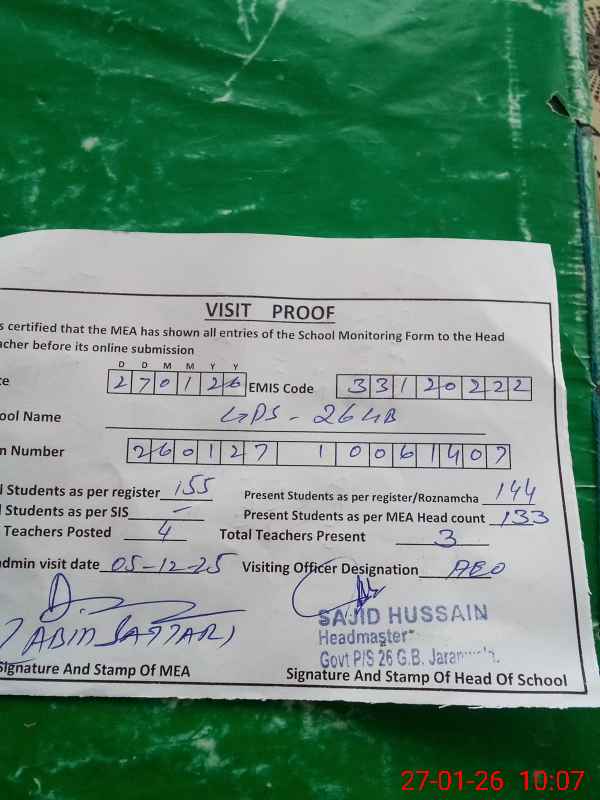 VISIT PROOF
s certified that the MEA has shown all entries of the School Monitoring Form to the Head
acher before its online submission
D D M M Y Y
te 270126 EMIS Code 33120222
ool Name GPS - 26 GB
n Number 260127 1 0061407
l Students as per register 155 Present Students as per register/Roznamcha 144
l Students as per SIS - Present Students as per MEA Head count 133
Teachers Posted 4 Total Teachers Present 3
dmin visit date 05-12-25 Visiting Officer Designation AEO
SAJID HUSSAIN
Headmaster
Govt P/S 26 G.B. Jaranwala.
Signature And Stamp Of MEA Signature And Stamp Of Head Of School
27-01-26 10:07